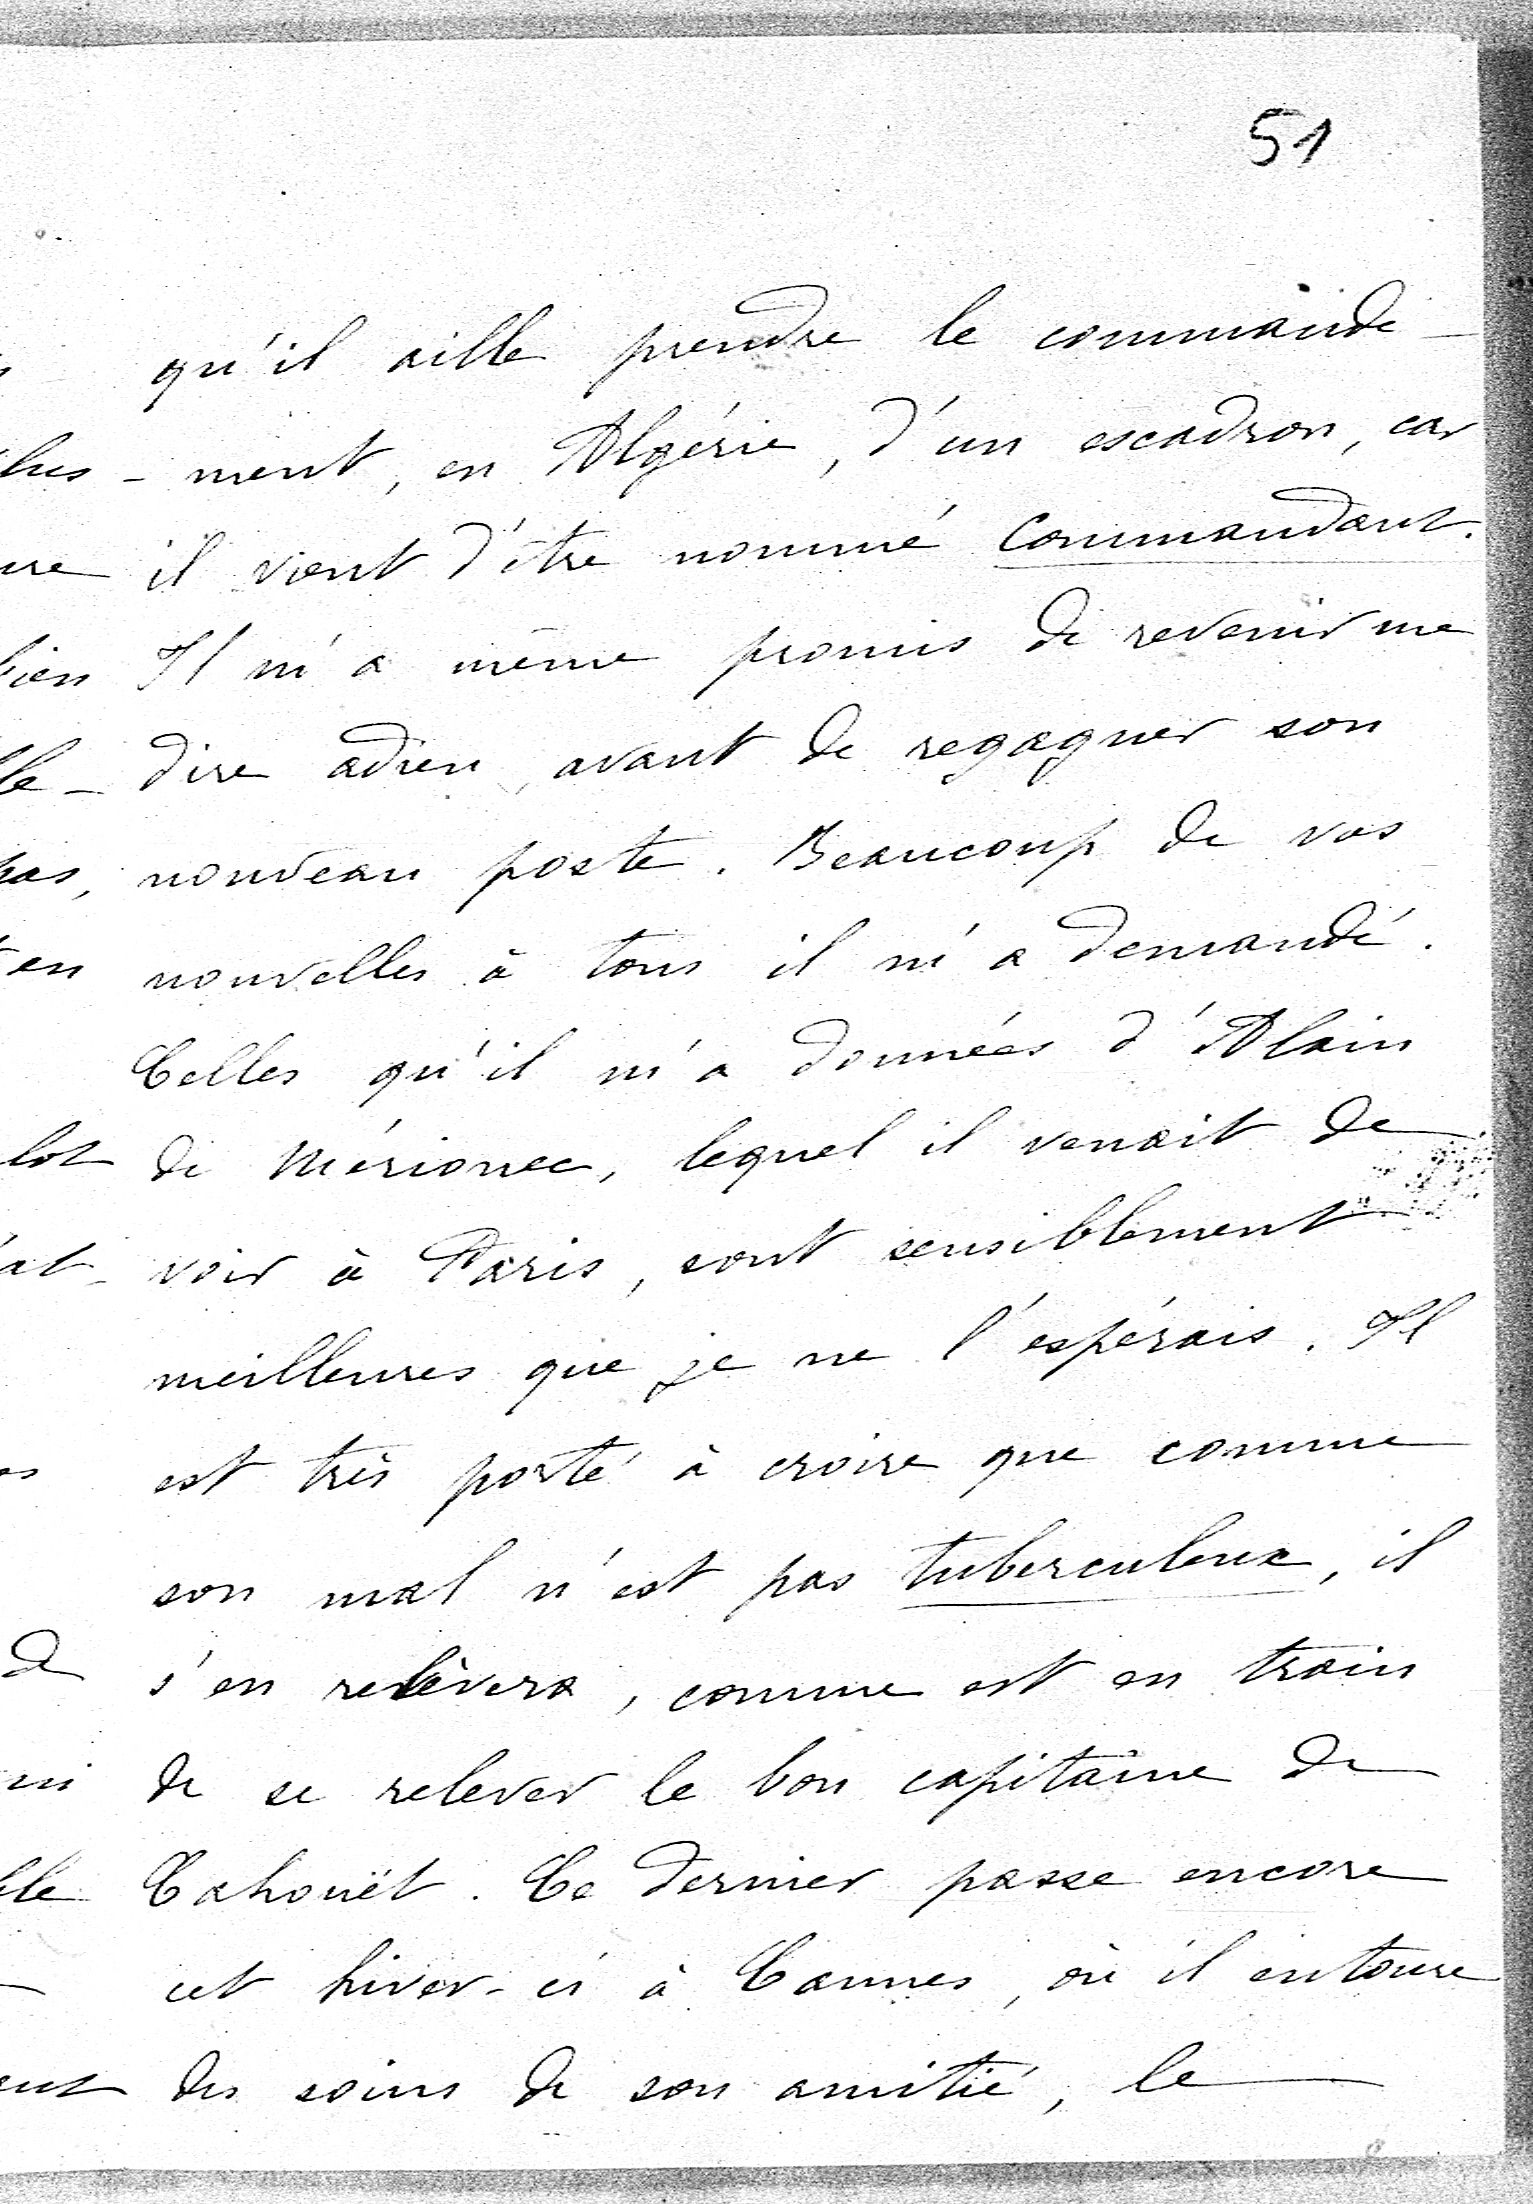 51
qu'il aille prendre le commande-
- ment, en Algérie, d'un escadron, car
il vient d'être nommé Commandant.
Il m'a même promis de revenir me
dire adieu, avant de regagner son
nouveau poste. Beaucoup de vos
nouvelles à tous il m'a demandé.
Celles qu'il m'a données d'Alain
de Mérionec, lequel il venait de
voir à Paris, sont sensiblement
meilleures que je ne l'espérais. Il
est très porté à croire que comme
son mal n'est pas tuberculeux, il
s'en relèvera, comme est en train
de se relever le bon capitaine de
Cahouët. Ce dernier passe encore
cet hiver-ci à Cannes, où il entoure
des soins de son amitié, le